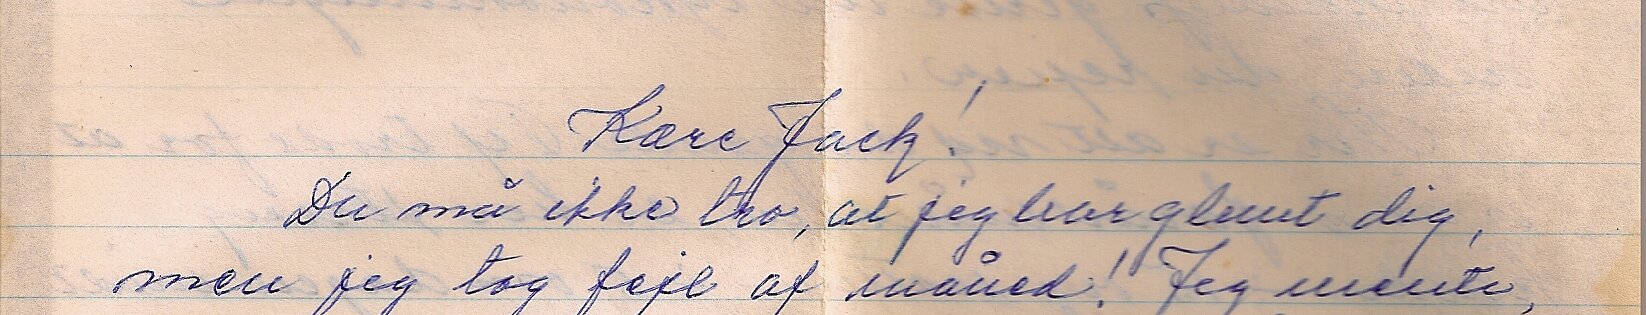 Kære Jack!
Du må ikke tro, at jeg har glemt dig,
men jeg tog fejl af måned! Jeg mente,